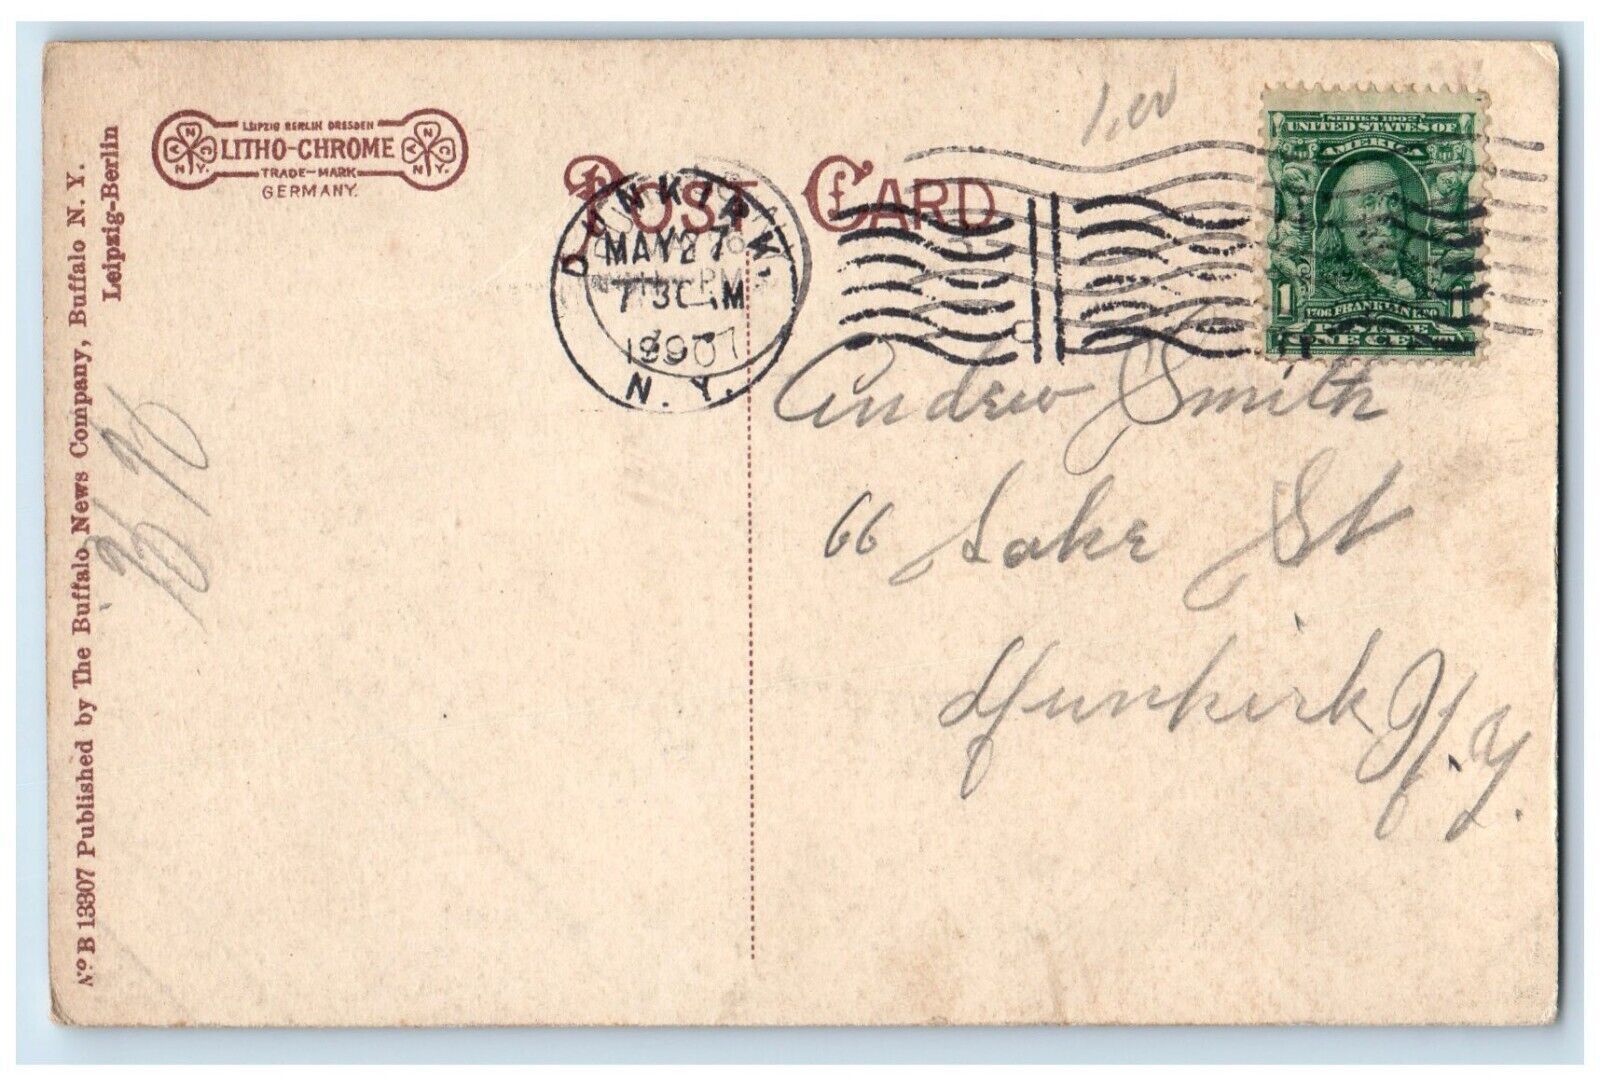 LEIPZIG BERLIN DRESDEN
LITHO-CHROME
TRADE-MARK
GERMANY.
POST CARD
1,00
DUNKIRK,
MAY 27
7 30 AM
1907
N. Y.
SERIES 1902
UNITED STATES OF
AMERICA
1 1
1706 FRANKLIN 1790
ONE CENT
Andrew Smith
66 Lake St
Dunkirk, N.Y.
No B 13807 Published by The Buffalo News Company, Buffalo N. Y.
Leipzig-Berlin